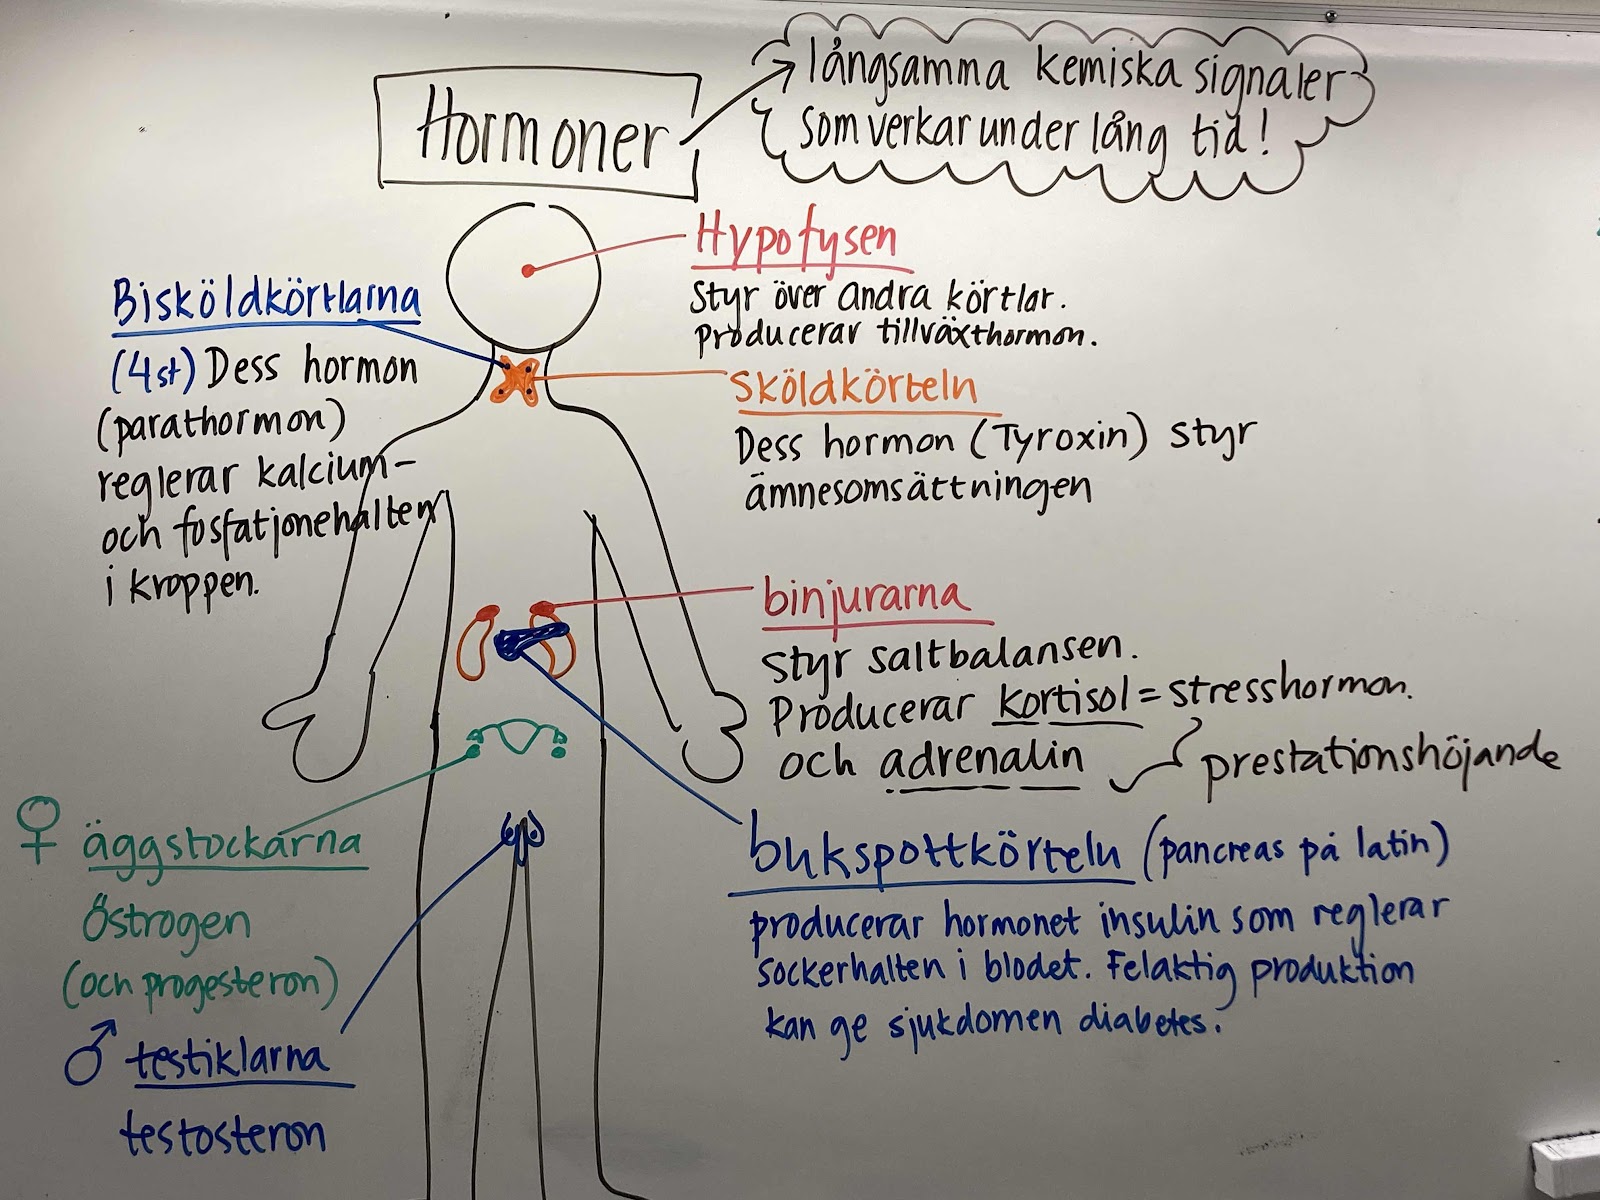 Hormoner
långsamma kemiska signaler
som verkar under lång tid!
Hypofysen
Styr över andra körtlar.
Producerar tillväxthormon.
Bisköldkörtlarna
(4st) Dess hormon
(parathormon)
reglerar kalcium-
och fosfatjonehalten
i kroppen.
Sköldkörteln
Dess hormon (Tyroxin) styr
ämnesomsättningen
binjurarna
Styr saltbalansen.
Producerar kortisol = stresshormon.
och adrenalin
prestationshöjande
♀ äggstockarna
Östrogen
(och progesteron)
♂ testiklarna
testosteron
bukspottkörteln (pancreas på latin)
producerar hormonet insulin som reglerar
sockerhalten i blodet. Felaktig produktion
kan ge sjukdomen diabetes.